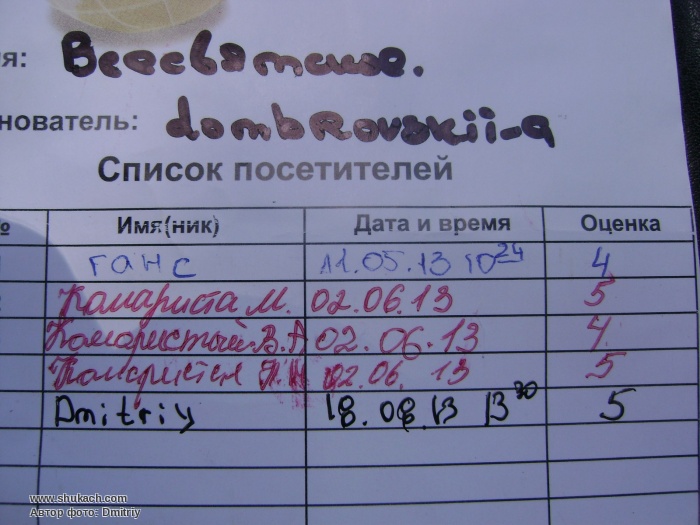 я: Всесвятское.
нователь: dombrovskii-a
Список посетителей
№ Имя(ник) Дата и время Оценка
ганс 11.05.13 10 24 4
Комариста М. 02.06.13 5
Комаристый В.А 02.06.13 4
02.06. 13 5
Dmitriy 18.08.13 13 30 5
www.shukach.com
Автор фото: Dmitriy